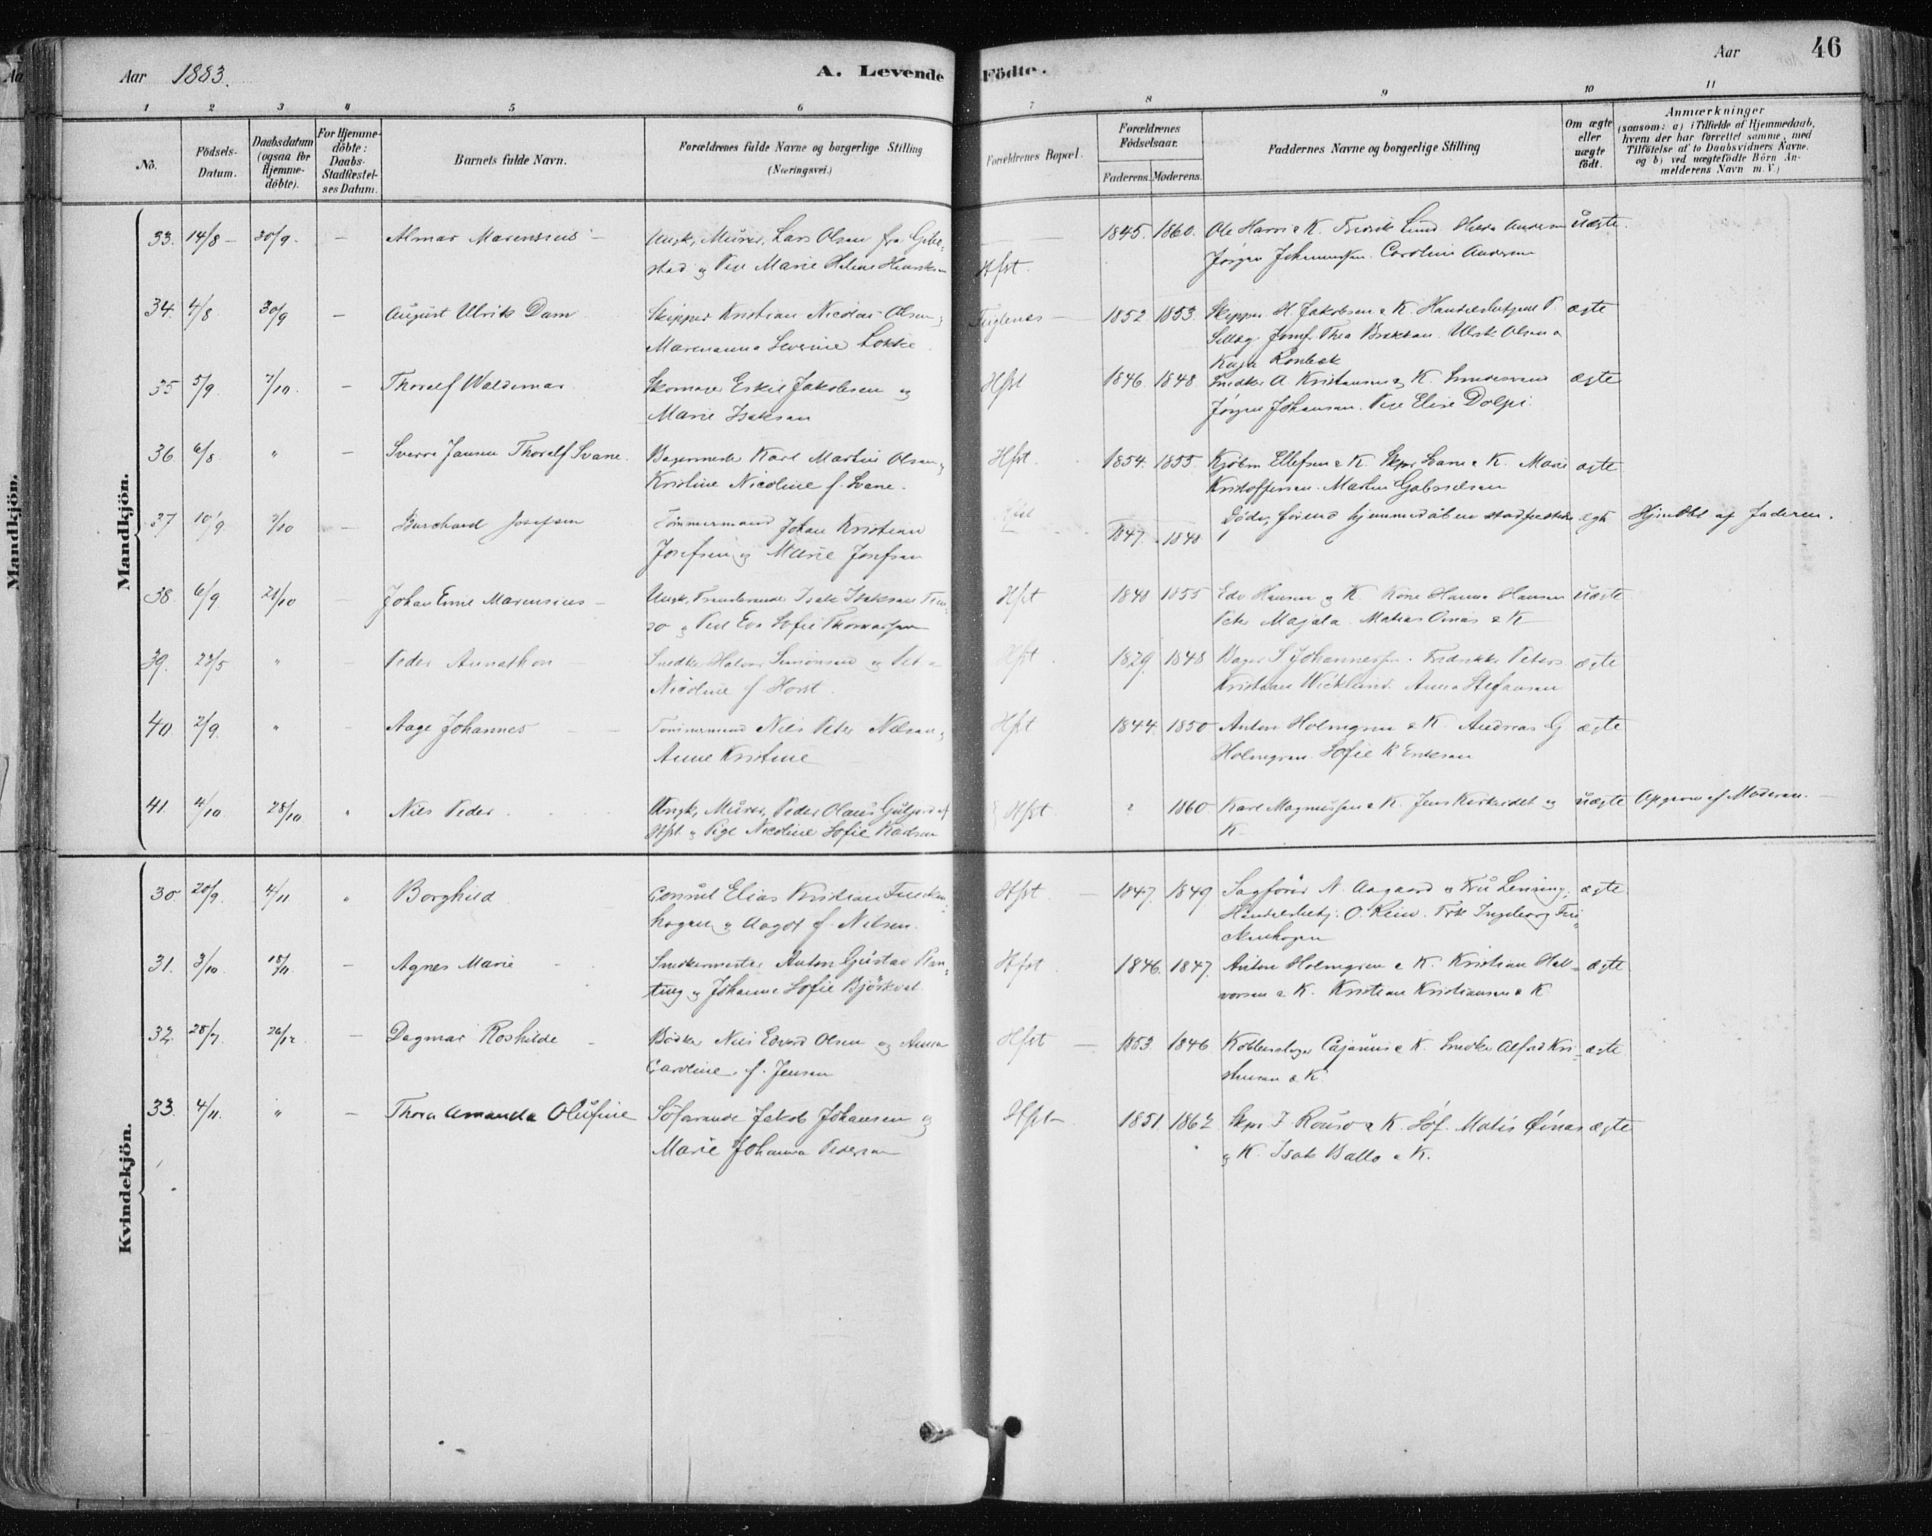 Aar 1883.
A. Levende Födte.
Aar 46
1 2 3 4 5 6 7 8 9 10 11
No.
Födsels-Datum.
Daabsdatum (ogsaa for Hjemme-döbte).
For Hjemme-döbte: Daabs-Stadfæstel-ses Datum.
Barnets fulde Navn.
Forældrenes fulde Navne og borgerlige Stilling (Næringsvei.)
Forældrenes Bopæl.
Forældrenes Födselsaar.
Faderens. Moderens.
Faddernes Navne og borgerlige Stilling
Om ægte eller uægte födt.
Anmærkninger
(saasom: a) i Tilfælde af Hjemmedaab,
hvem der har forrettet samme, med
Tilföielse af to Daabsvidners Navne.
og b) ved uægtefödte Börn An-
melderens Navn m.V.)
Mandkjön.
Mandkjön.
33. 14/8 - 30/9. - Almar Marensius - Ungk. Murer, Lars Olsen fra Gibo- 1845. 1860. Ole Harr & K. Fredrik Lund. Hilda Andersen uægte
stad og Pige Marie Helene Henriksen Hfst. Jørgen Johannessen. Caroline Andersen
34. 4/8 30/9 - August Ulrik Dam Skipper Kristian Nicolai Olsen og Fuglenes - 1852 1853. Skipper H. Jakobsen & K. Handelsbetjent P. ægte
Marenanna Severine Løkke. Josef. Thea Ulrik Olsen &
Kaja
35 5/9 7/10. - Thoralf Waldemar Skomager Eskil Jakobsen og Hfst 1846. 1848. Snedker A Kristiansen & K. ægte
Marie Isaksen Jørgen Johansen. Pige Elise Dolpi.
36 6/8 " - Sverre Jansen Thoralf Svane. Bagermester Karl Martin Olsen og Hfst. 1854. 1855. Kjøbm Ellefsen & K. Skpr Svane & K. Marie ægte
Kristine Nicoline f. Svane. Kristoffersen. Martin Gabrielsen
37 10/9 7/10 - Burchard Josefsen Tømmermand Johan Kristian Hfst Døde, førend hjemmedaaben stadfæstedes ægte Hjemdbt af Faderen.
Josefsen og Marie Josefsen 1847. 1848
38. 6/9 21/10 - Johan Emil Marensius - Ungk. Isak Isaksen Hfst 1840 1855 Edv Hansen og K. Kone Hanna Hansen uægte
og Pige Eva Sofie Thomassen Peter Majala. Matias Oinas & K
39. 23/5 " - Peder Annathon - Snedker Halvor Simonsen og Hfst. 1829. 1848 Bager S Johannessen. Fredrikke Peters. ægte
Nicoline f Horst. Kristian Wicklund. Anna Stefansen
40 2/9. " - Aage Johannes - Tømmermand Nils Peter Nilsen og Hfst 1844. 1850 Anton Holmgren & K. Andreas G ægte
Anne Kristine Holmgren. Sofie K. Eriksen
41. 4/10 28/10 " Nils Peder Ungk. Murer, Peder Olaus af Hfst. " 1860. Karl Magnussen & K. Jens og uægte Opgivn af Moderen. -
Hfst. og Pige Nicoline Sofie K-
Kvindekjön.
30 20/9. 4/11 " Borghild Consul Elias Kristian Hfst. - 1847. 1849 Sagfører N. Aagaard og Fru Lensing. ægte
hagen og Aagot f. Nilsen. Handelsbetj. O. Rein. Frk Ingeborg
31. 3/10. 18/11. - Agnes Marie Snedkermester Anton Gustav Hfst. 1846. 1847. Anton Holmgren & K. Kristian Hal- ægte
og Johanne Sofie vorsen & K. Kristian Kristiansen & K.
32. 28/7 26/12 - Dagmar Roshilde - Bødker Nils Edvard Olsen og Anna Hfst - 1853. 1846. Kobberslager Cajanus & K. Snedker Alfred Kri- ægte
Caroline f. Jensen stiansen & K.
33. 4/11. " - Thora Amanda Olufine Søfarende Jakob Johansen og Hfst - 1851 1862. Skpr & K. Søf. Matis Oinas ægte
Marie Johanna Pedersen og K. Isak Ballo & K.